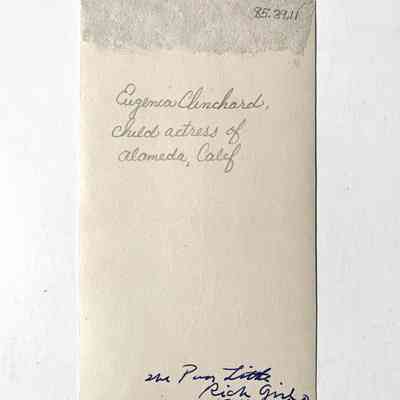 85.39.11
Eugenia Clinchard,
child actress of
Alameda, Calif
The Poor Little
Rich Girl